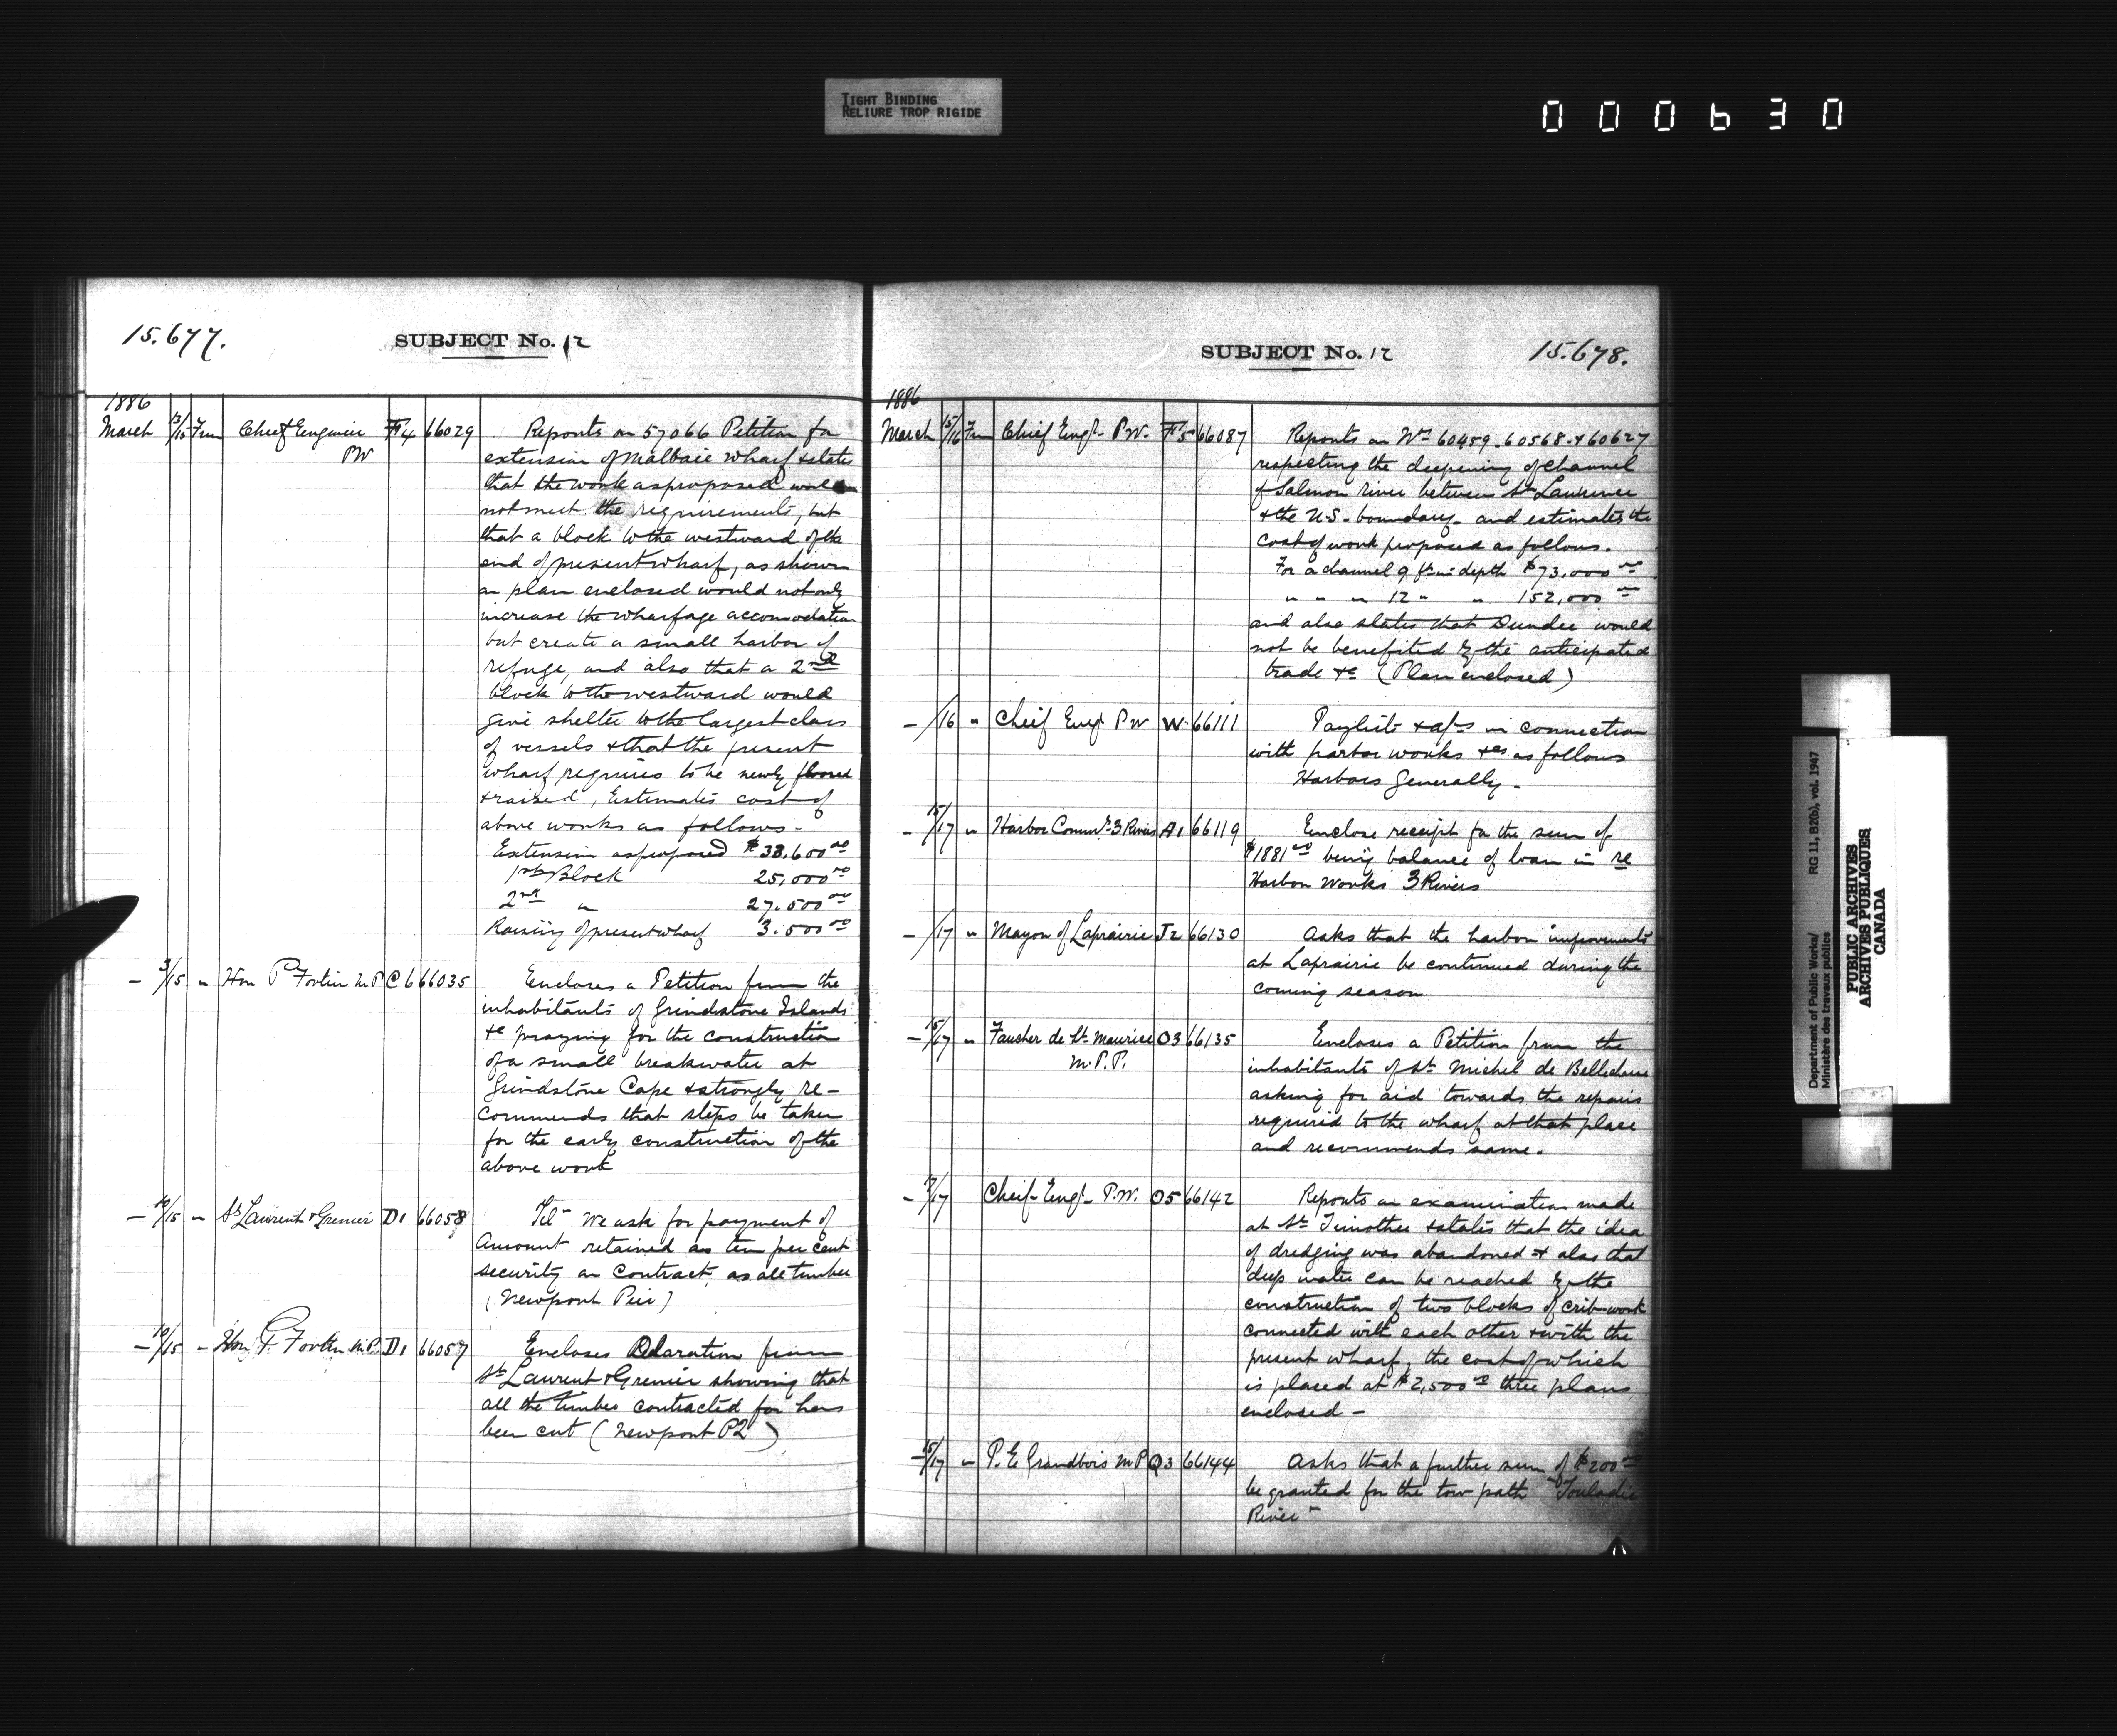 TIGHT BINDING
RELIURE TROP RIGIDE
000630
15.677.
SUBJECT No. 12
1886
March 13/15 From Chief Engineer PW F4 66029
Reports on 57066 Petition for
extension of Malbaie wharf & states
that the work as proposed would
not meet the requirements, but
that a block to the westward of the
end of present wharf, as shown
on plan enclosed would not only
increase the wharfage accomodation
but create a small harbor of
refuge, and also that a 2nd
block to the westward would
give shelter to the largest class
of vessels & that the present
wharf requires to be newly floored
& raised, Estimates cost of
above works as follows-
Extension as proposed $33,600 00
1st Block 25,000 00
2nd " 27.500 00
Raising of present wharf 3.500 00
- 3/15 " Hon P Fortin M.P C6 66035
Encloses a Petition from the
inhabitants of Grindstone Islands
&c praying for the construction
of a small breakwater at
Grindstone Cape & strongly re-
commends that steps be taken
for the early construction of the
above work
- 10/15 " St Laurent & Grenier D1 66058
Tel- We ask for payment of
Amount retained as ten per cent
security on Contract, as all timber
(Newport Pier)
- 10/15 " Hon P. Fortin M.P. D1 66057
Encloses Declaration from
St Laurent & Grenier showing that
all the timber contracted for has
been cut (Newport PQ)
SUBJECT No. 12
15.678.
1886
March 15/16 From Chief Engr- P.W. F5 66087
Reports on Nos 60459-60568-& 60627
respecting the deepening of channel
of Salmon river between St Lawrence
& the U.S. boundary- and estimates the
cost of work proposed as follows.
For a channel 9 ft in depth $73,000 00
" " " 12 " " 152,000 00
and also states that Dundee would
not be benefited by the anticipated
trade &c (Plan enclosed)
- /16 " Cheif Engr P W W. 66111
Paylists & a/cs in connection
with harbor works &cs as follows
Harbors Generally-
- 15/17 " Harbor Commrs 3 Rivers A1 66119
Enclose receipt for the sum of
$1881 00 being balance of loan in re
Harbor Works 3 Rivers
- /17 " Mayor of Laprairie J2 66130
Asks that the harbor improvements
at Laprairie be continued during the
coming season
- 15/17 " Faucher de St Maurice O3 66135
M.P.P.
Encloses a Petition from the
inhabitants of St Michel de Bellechasse
asking for aid towards the repairs
required to the wharf at that place
and recommends same.
- /17 Cheif- Engr- P.W. O5 66142
Reports on examination made
at St Timothee & states that the idea
of dredging was abandoned & also that
deep water can be reached by the
construction of two blocks of crib-work
connected with each other & with the
present wharf, the cost of which
is placed at $2,500 00 three plans
enclosed-
- 15/17 " P. E Grandbois M P Q3 66144
Asks that a further sum of $200 00
be granted for the tow path "Touladie
River"
Department of Public Works/
Ministère des travaux publics
RG 11, B2(b), vol. 1947
PUBLIC ARCHIVES
ARCHIVES PUBLIQUES
CANADA